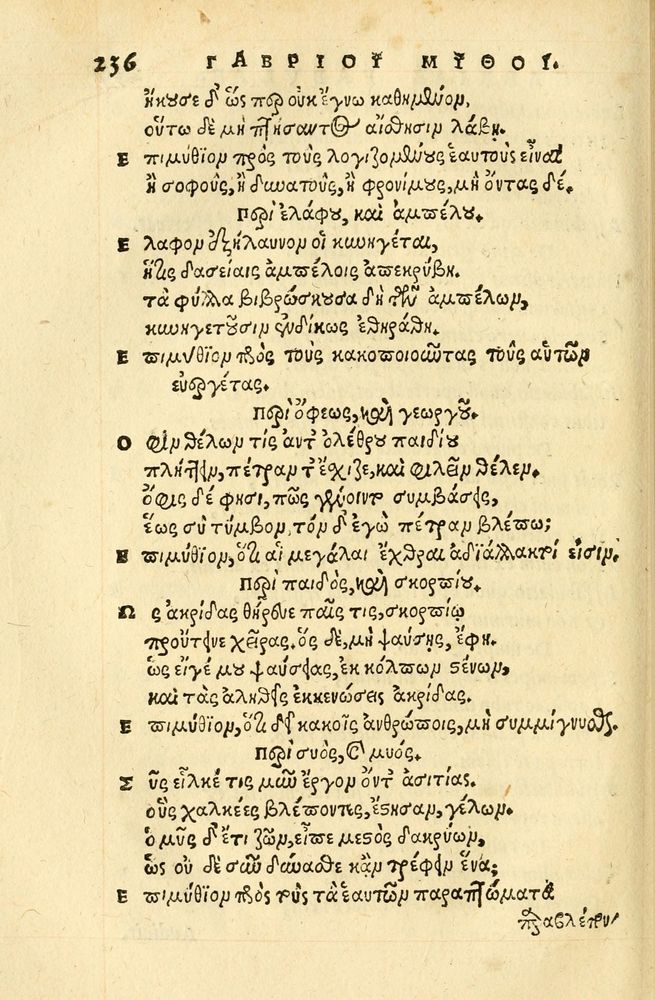 236 ΓΑΒΡΙΟΥ ΜΥΘΟΙ.
ἤκουσε δ' ὥσπερ οὐκ ἔγνω καθημένον,
οὕτω δὲ μὴ πτήσαντος αἴσθησιν λάβῃ.
Ἐπιμύθιον πρὸς τοὺς λογιζομένους ἑαυτοὺς εἶναι
ἢ σοφοὺς, ἢ δυνατοὺς, ἢ φρονίμους, μὴ ὄντας δέ.
Περὶ ἐλάφου, καὶ ἀμπέλου.
Ἔλαφον ἐξήλαυνον οἱ κυνηγέται,
ἥτις δασείαις ἀμπέλοις ἀπεκρύβη.
τὰ φύλλα βιβρώσκουσα δὴ τῶν ἀμπέλων,
κυνηγετοῦσιν ἐνδίκως ἐθηράθη.
Ἐπιμύθιον πρὸς τοὺς κακοποιοῦντας τοὺς αὑτῶν
εὐεργέτας.
Περὶ ὄφεως, καὶ γεωργοῦ.
Ὄφιν θέλων τίς ἀντ' ὀλέθρου παιδίου
πλήττειν, πέτραν τ' ἔσχιζε, καὶ φιλεῖν θέλεν.
ὄφις δέ φησι, πῶς γένοιντο συμβάσεις,
ἕως σὺ τύμβον, τόνδ' ἐγὼ πέτραν βλέπω;
Ἐπιμύθιον, ὅτι αἱ μεγάλαι ἔχθραι ἀδιάλλακτοί εἰσιν.
Περὶ παιδὸς, καὶ σκορπίου.
Ὡς ἀκρίδας θήρευε παῖς τις, σκορπίῳ
προὔτεινε χεῖρας. ὃς δὲ, μὴ ψαύσῃς, ἔφη.
ὡς εἴγέ μου ψαύσεις, ἐκ κόλπων στένων,
καὶ τὰς ἀληθεῖς ἐκκενώσεις ἀκρίδας.
Ἐπιμύθιον, ὅτι δεῖ κακοῖς ἀνθρώποις, μὴ συμμίγνυσθαι.
Περὶ συὸς, καὶ μυός.
Σῦς εἷλκέ τις μῦν ἔργον ὄντ' ἀσιτίας.
οὓς χαλκέες βλέποντες, ἔστησαν, γέλων.
ὁ μῦς δ' ἔτι ζῶν, εἶπε μεστὸς δακρύων,
ὡς οὐδὲ σῦν δύνασθε κἂν τρέφειν ἕνα;
Ἐπιμύθιον πρὸς τοὺς τὰ ἑαυτῶν παραπτώματα